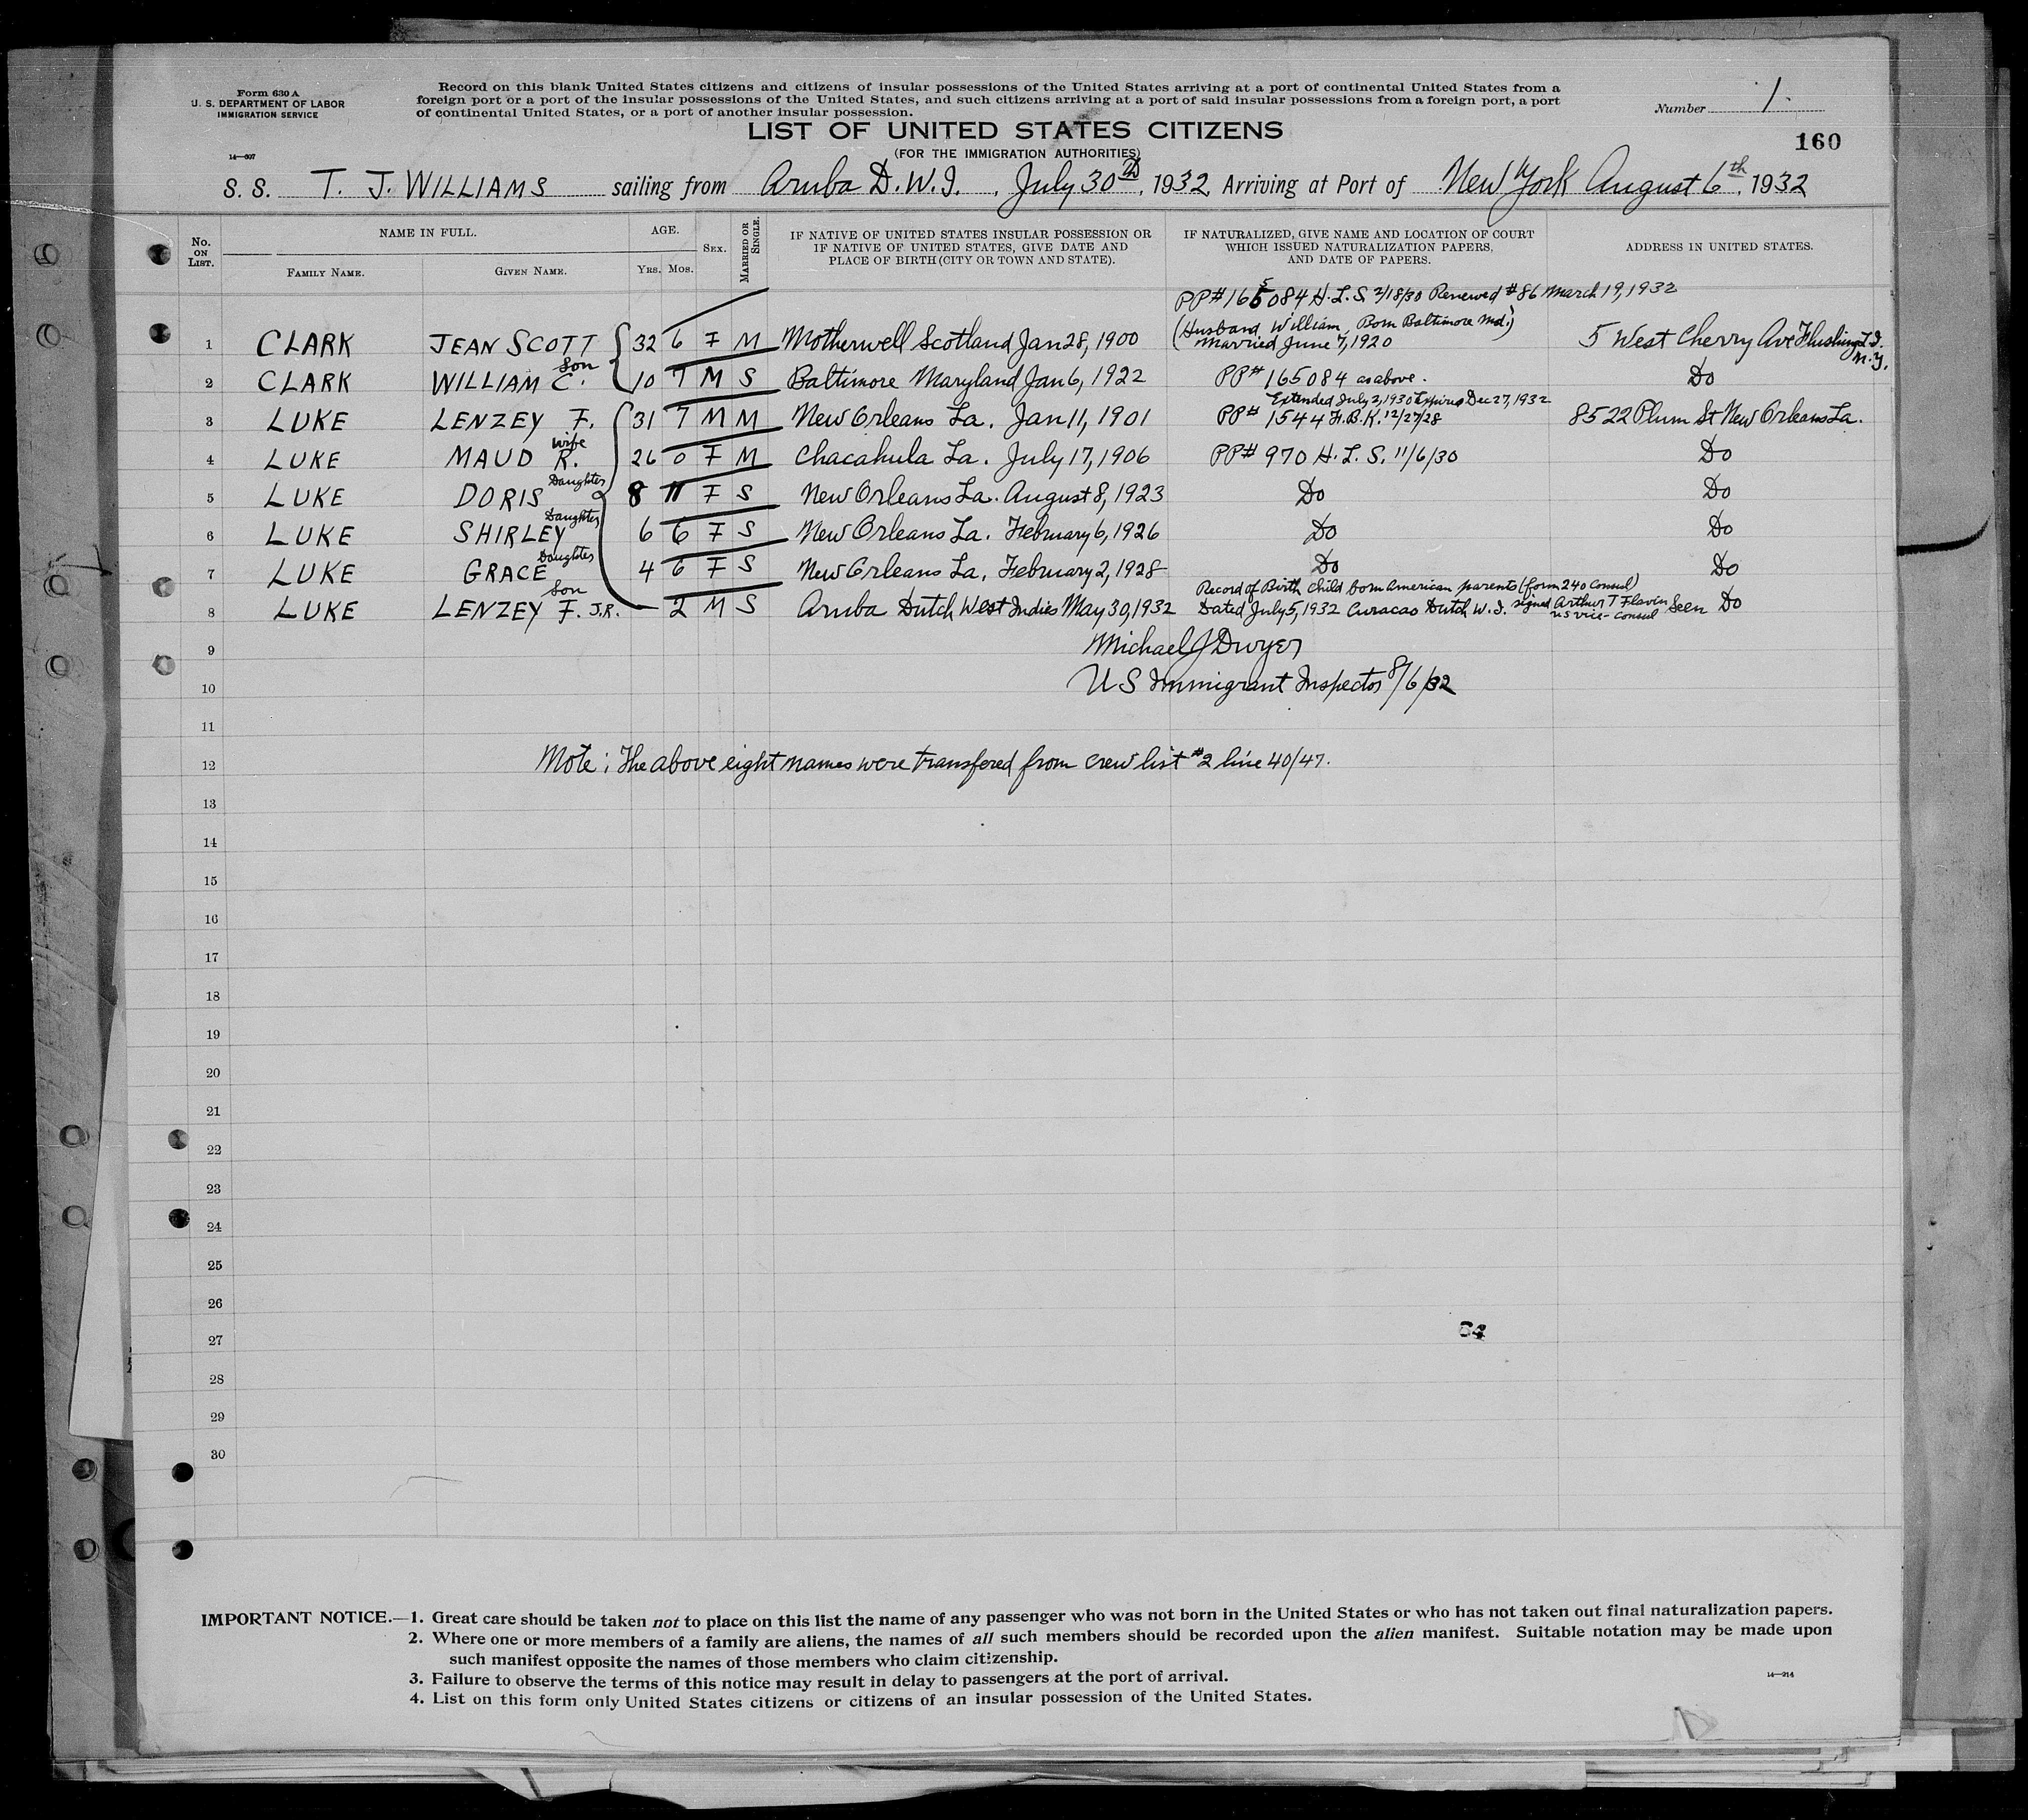 Form 630 A
U. S. DEPARTMENT OF LABOR
IMMIGRATION SERVICE
14—607
Record on this blank United States citizens and citizens of insular possessions of the United States arriving at a port of continental United States from a
foreign port or a port of the insular possessions of the United States, and such citizens arriving at a port of said insular possessions from a foreign port, a port
of continental United States, or a port of another insular possession.
Number 1.
160
LIST OF UNITED STATES CITIZENS
(FOR THE IMMIGRATION AUTHORITIES)
S. S. T. J. WILLIAMS sailing from Aruba D.W.I. , July 30th, 1932, Arriving at Port of New York August 6th, 1932
No. ON LIST. NAME IN FULL. FAMILY NAME. GIVEN NAME. AGE. YRS. MOS. SEX. MARRIED OR SINGLE. IF NATIVE OF UNITED STATES INSULAR POSSESSION OR IF NATIVE OF UNITED STATES, GIVE DATE AND PLACE OF BIRTH (CITY OR TOWN AND STATE). IF NATURALIZED, GIVE NAME AND LOCATION OF COURT WHICH ISSUED NATURALIZATION PAPERS, AND DATE OF PAPERS. ADDRESS IN UNITED STATES.
PP# 165084 H.L.S. 2/18/30 Renewed #86 March 19, 1932
(Husband William, Born Baltimore Md.)
1 CLARK JEAN SCOTT 32 6 F M Motherwell Scotland Jan 28, 1900 Married June 7, 1920 5 West Cherry Ave Flushing L.I. N.Y.
2 CLARK WILLIAM C. Son 10 7 M S Baltimore Maryland Jan 6, 1922 PP# 165084 as above. Do
Extended July 2, 1930 Expires Dec 27, 1932
3 LUKE LENZEY F. 31 7 M M New Orleans La. Jan 11, 1901 PP# 1544 F.B.K. 12/27/28 8522 Plum St New Orleans La.
4 LUKE MAUD R. wife 26 0 F M Chacahula La. July 17, 1906 PP# 970 H.L.S. 11/6/30 Do
5 LUKE DORIS Daughter 8 11 F S New Orleans La. August 8, 1923 Do Do
6 LUKE SHIRLEY Daughter 6 6 F S New Orleans La. February 6, 1926 Do Do
7 LUKE GRACE Daughter 4 6 F S New Orleans La. February 2, 1928 Do Do
Record of Birth child born American parents (form 240 Consul)
8 LUKE LENZEY F. J.R. Son 2 M S Aruba Dutch West Indies May 30, 1932 Dated July 5, 1932 Curacao Dutch W.I. signed Arthur T Flavin US vice-consul Seen Do
9 Michael J Dwyer
10 US Immigrant Inspector 8/6/32
11
12 Note; The above eight names were transfered from crew list #2 line 40/47.
13
14
15
16
17
18
19
20
21
22
23
24
25
26
27
28
29
30
IMPORTANT NOTICE.—1. Great care should be taken not to place on this list the name of any passenger who was not born in the United States or who has not taken out final naturalization papers.
2. Where one or more members of a family are aliens, the names of all such members should be recorded upon the alien manifest. Suitable notation may be made upon
such manifest opposite the names of those members who claim citizenship.
3. Failure to observe the terms of this notice may result in delay to passengers at the port of arrival.
14—214
4. List on this form only United States citizens or citizens of an insular possession of the United States.